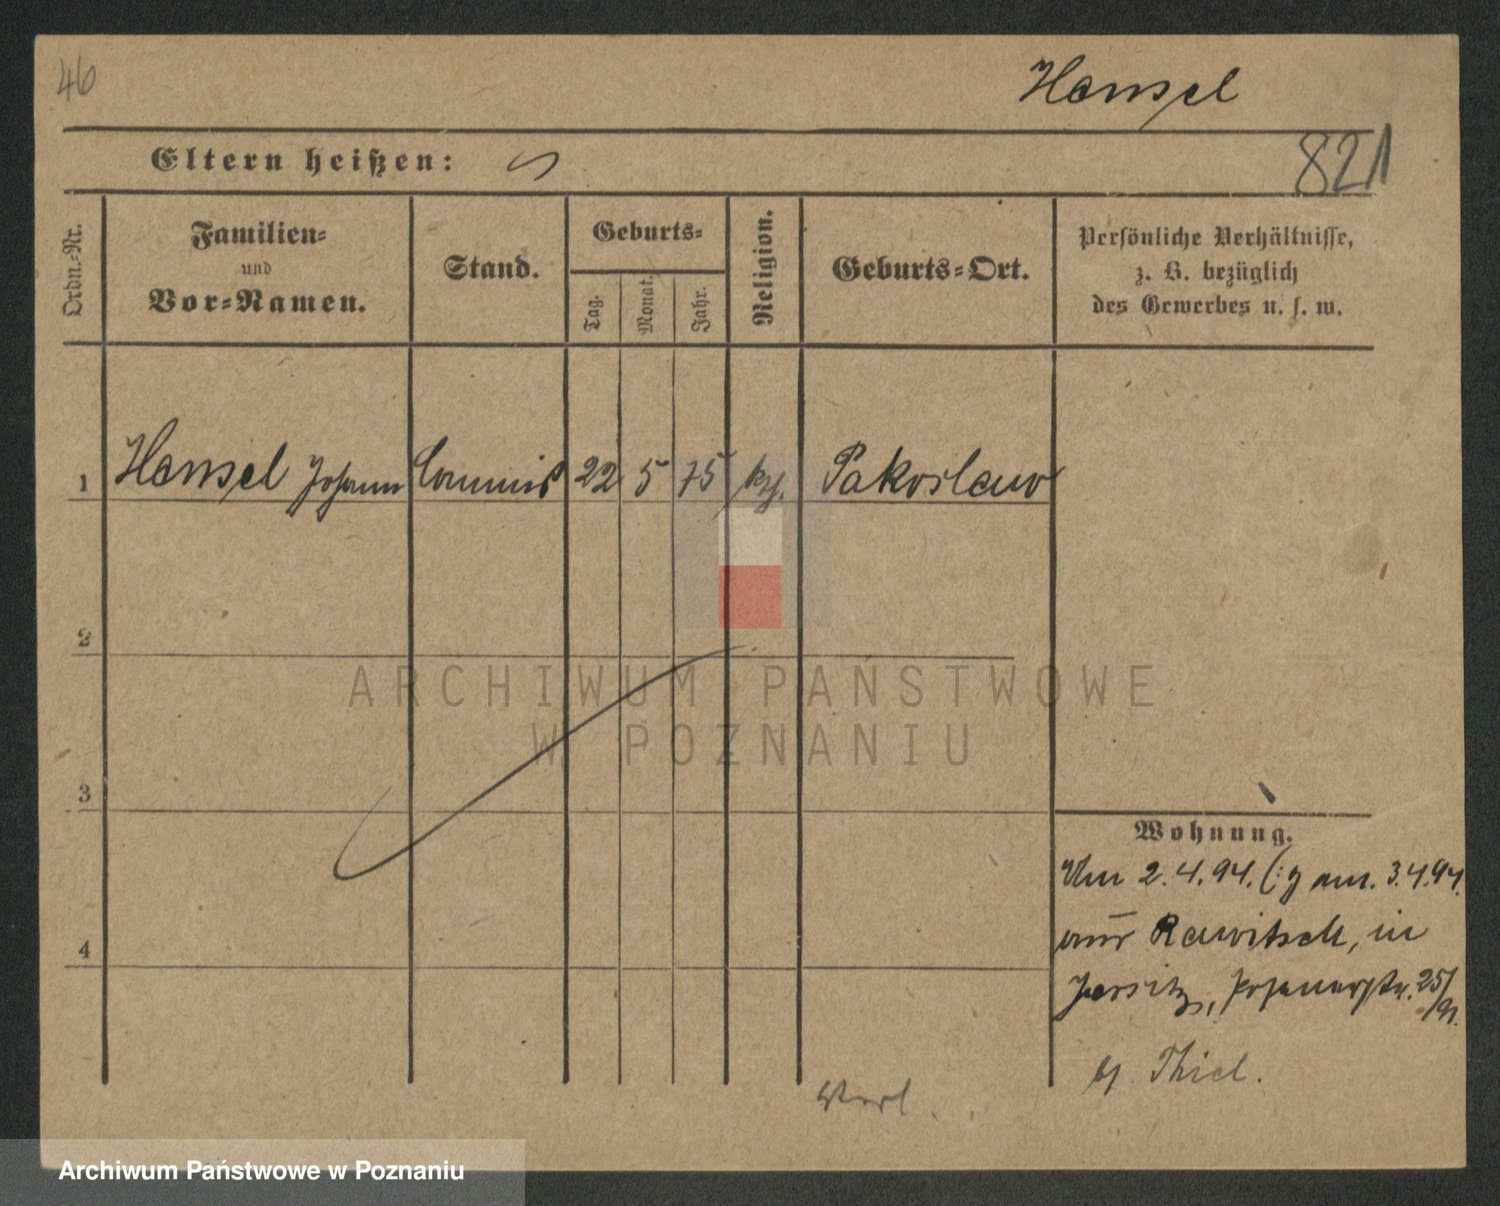 46
Hansel
Eltern heißen:
821
Ordn.-Nr.
Familien-
und
Vor-Namen.
Stand.
Geburts-
Tag.
Monat.
Jahr.
Religion.
Geburts-Ort.
Persönliche Verhältnisse,
z. B. bezüglich
des Gewerbes u. s. w.
1 Hansel Johann Commis 22 5 75 kth. Pakoslaw
2
3
4
ARCHIWUM PAŃSTWOWE
W POZNANIU
Wohnung.
2.4.94. am. 3.4.94.
aus Rawitsch, in
Jersitz, Posenerstr. 25/
91.
Thiel.
Archiwum Państwowe w Poznaniu